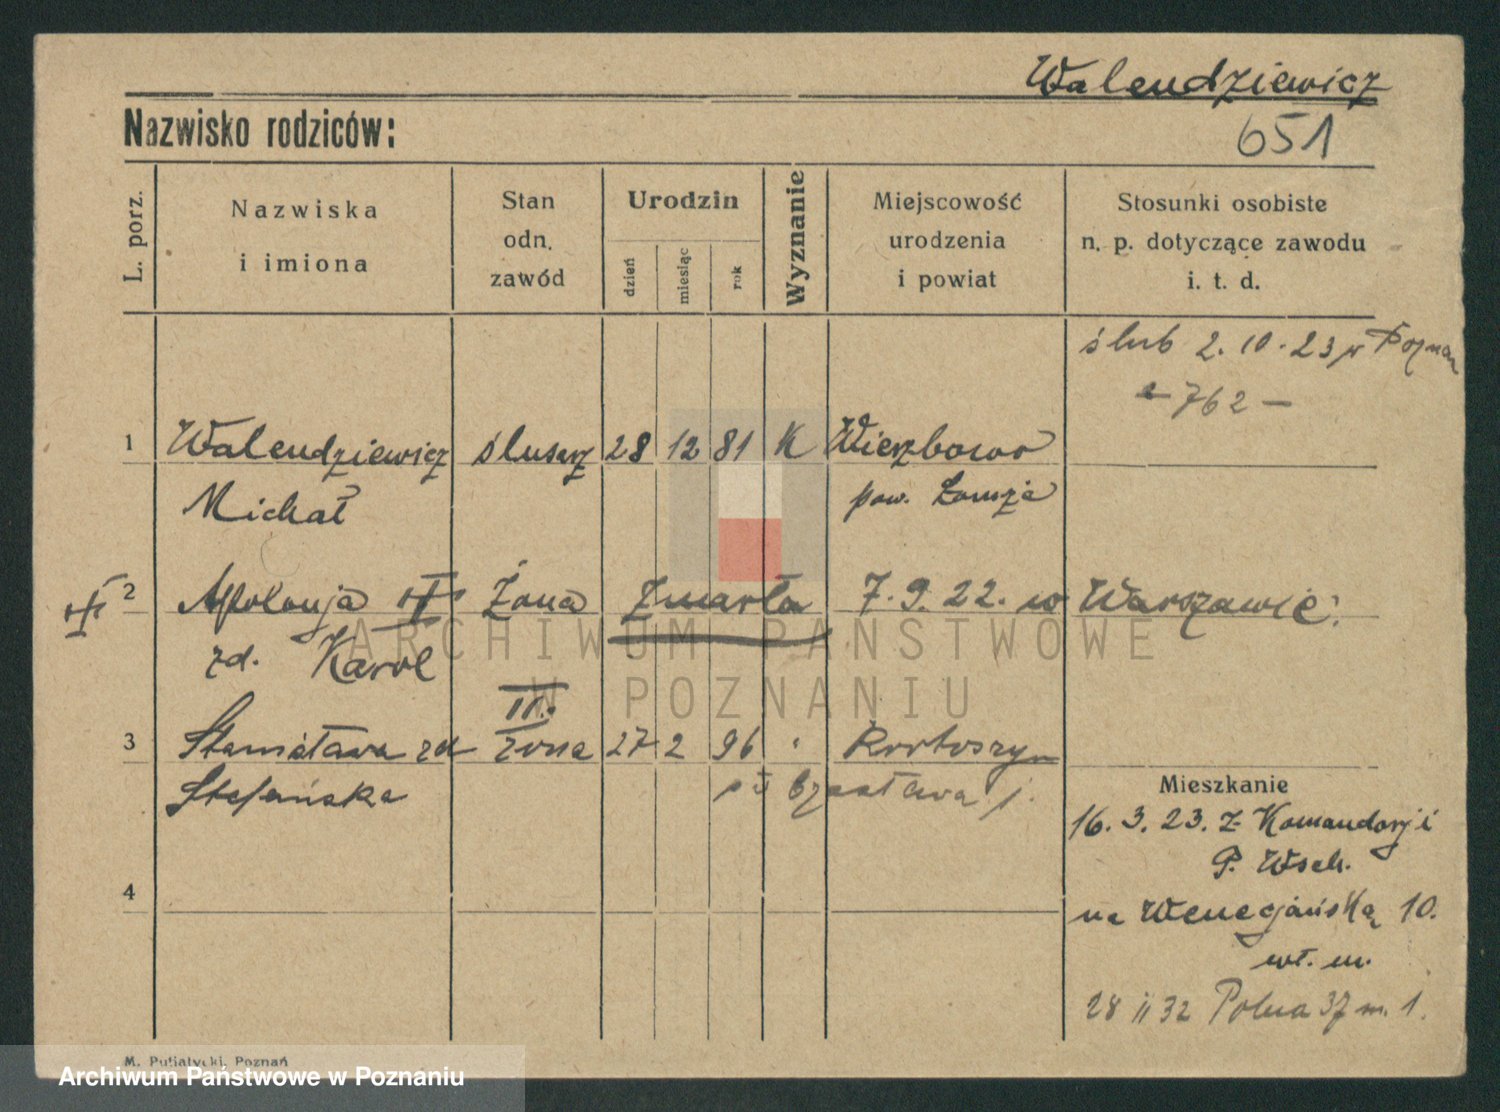 Walendziewicz
Nazwisko rodziców:
651
L. porz.
Nazwiska
i imiona
Stan
odn.
zawód
Urodzin
dzień
miesiąc
rok
Wyznanie
Miejscowość
urodzenia
i powiat
Stosunki osobiste
n. p. dotyczące zawodu
i. t. d.
ślub 2.10.23 w Poznan
- 762 -
1 Walendziewicz ślusarz 28 12 81 K Wierzbowo
Michał pow. Łomża
2 Apolonja Żona Zmarła 7.9.22. w Warszawie.
zd. Karol
II.
3 Stanisława zd żona 27 2 96 Krotoszyn
Stefańska
4
Mieszkanie
16.3.23. z Komandorji
P. Wsch.
na Wenecjańską 10.
wł. m.
28 II 32 Polna 37 m. 1.
ARCHIWUM PAŃSTWOWE
W POZNANIU
M. Putiatycki, Poznań
Archiwum Państwowe w Poznaniu